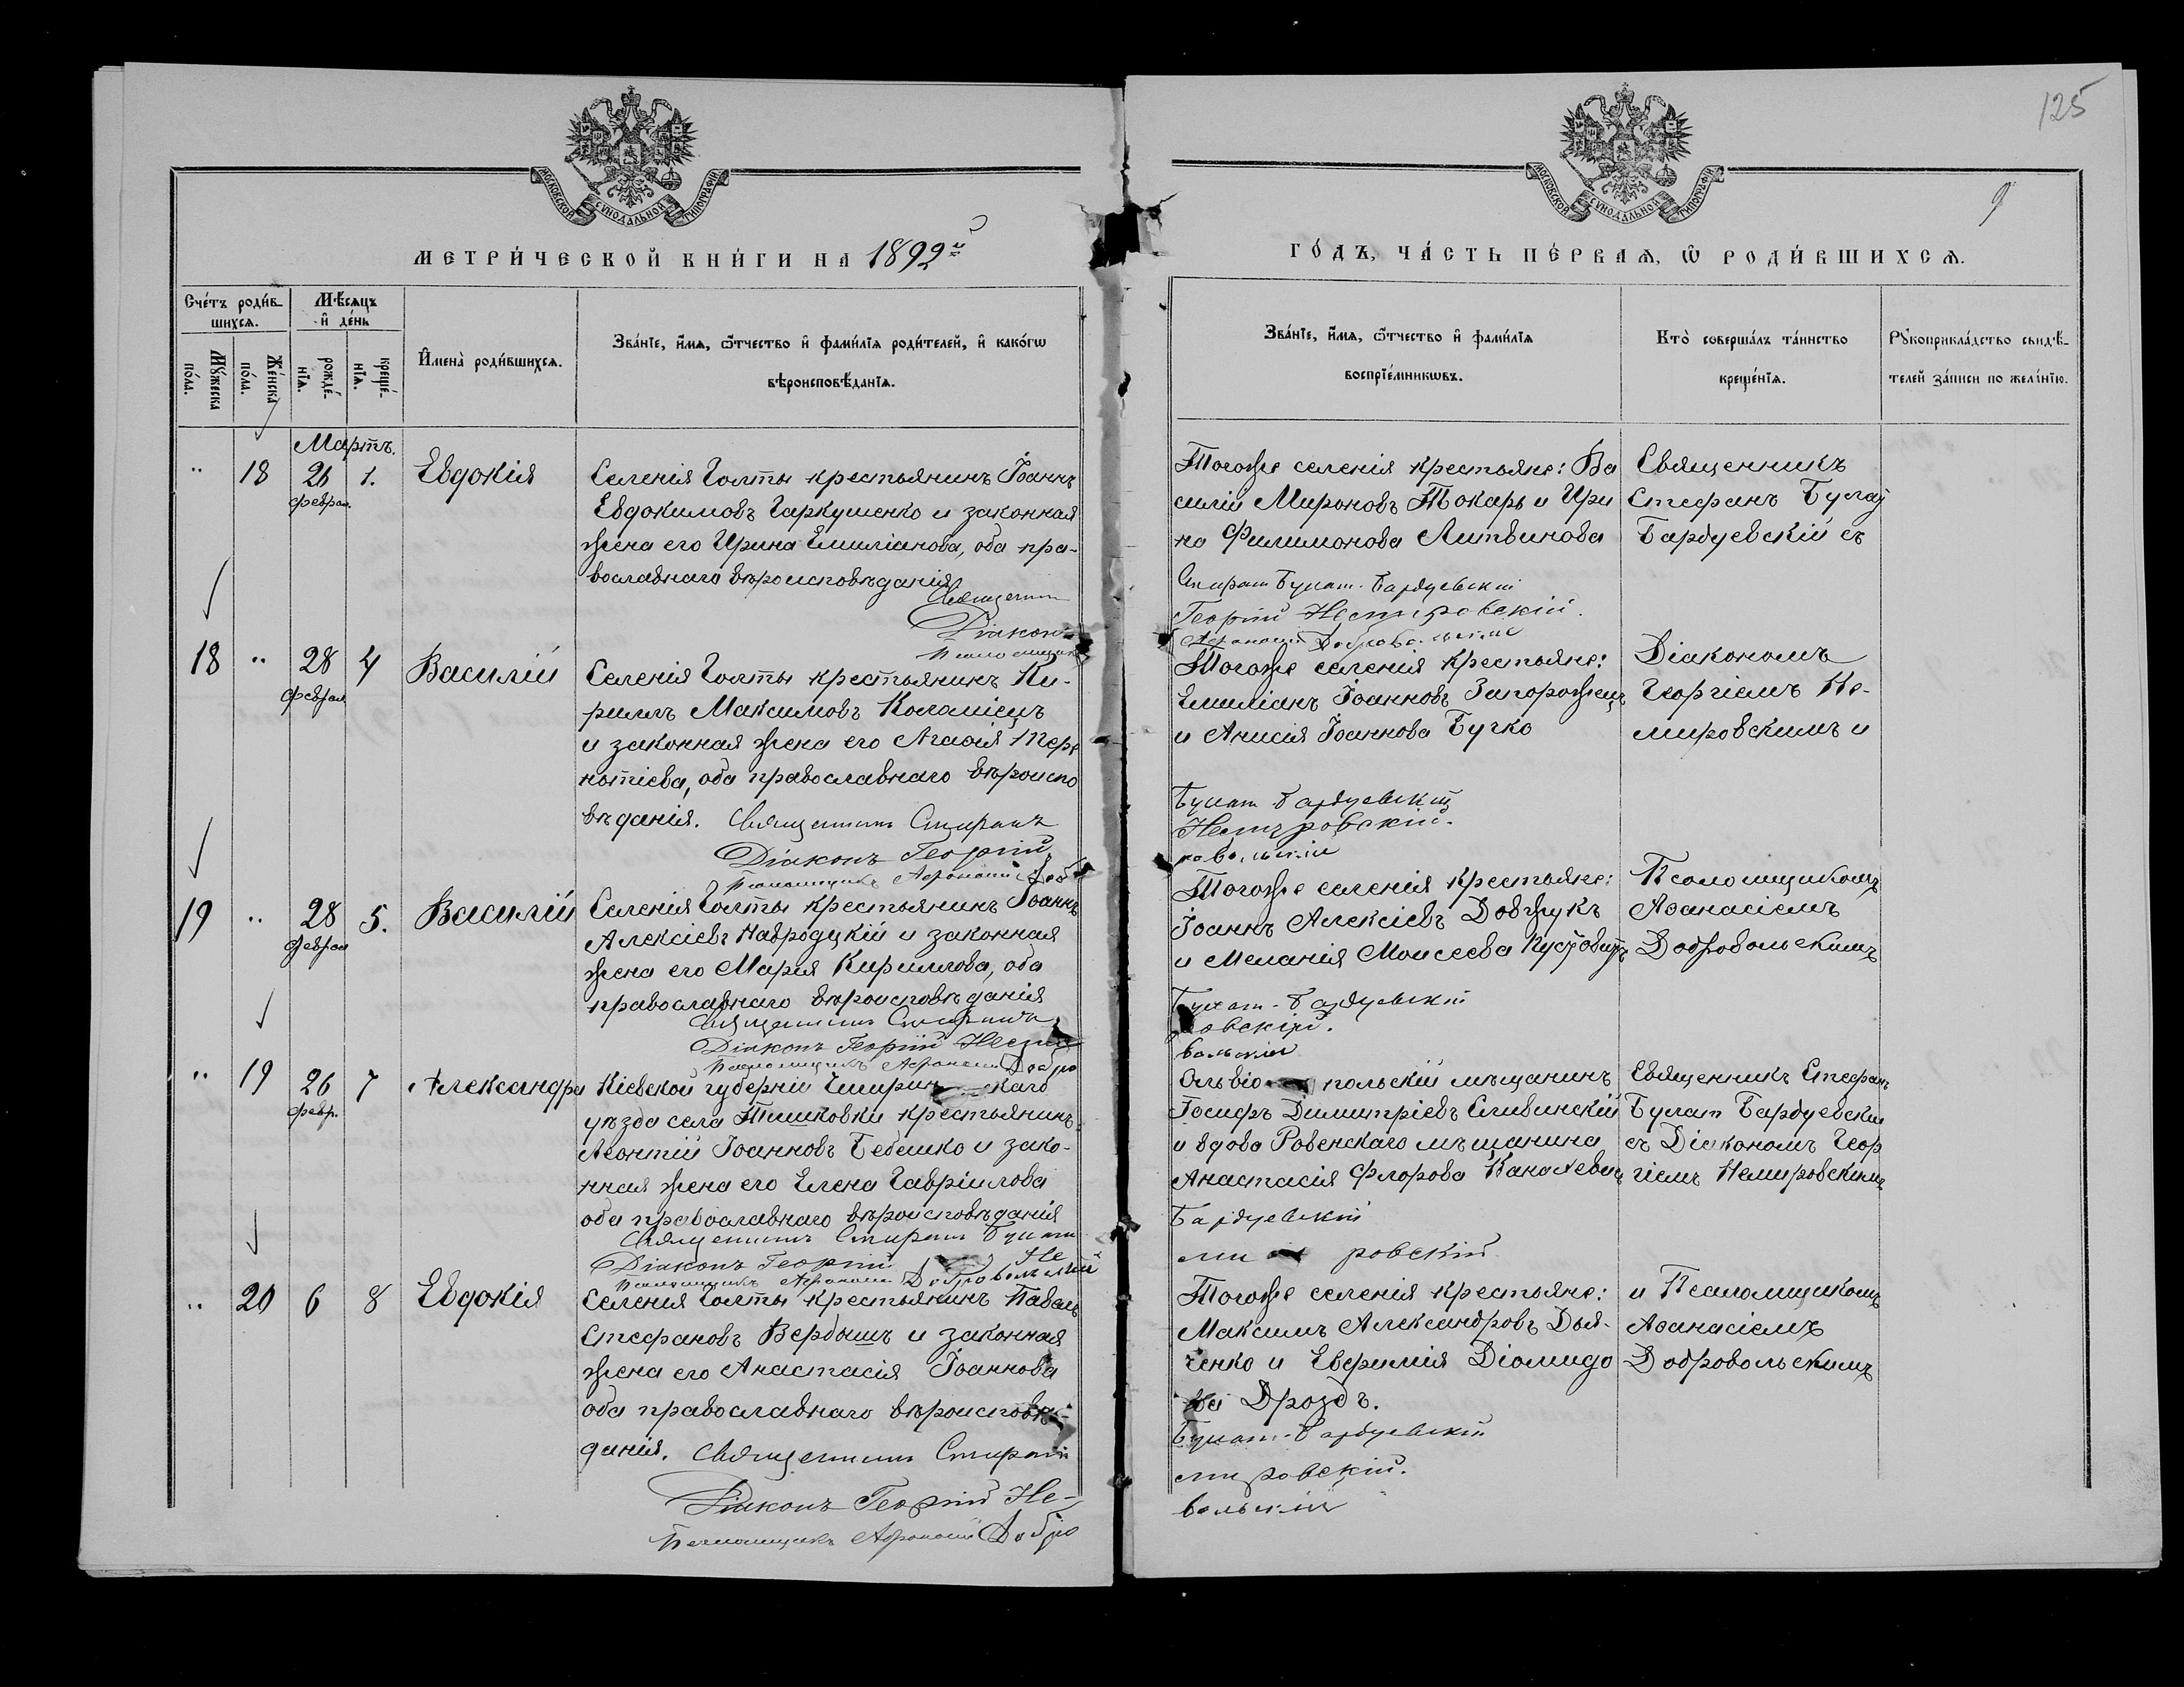 125
9
МОСКОВСКОЙ СѴНОДАЛЬНОЙ ТИПОГРАФІИ
МОСКОВСКОЙ СѴНОДАЛЬНОЙ ТИПОГРАФІИ
МЕТРИ́ЧЕСКОЙ КНИ́ГИ НА 1892й
ГО́ДЪ, ЧА́СТЬ ПЕ́РВАѦ, Ѡ҆ РОДИ́ВШИХСѦ.
Сче́тъ роди́в-
шихсѧ.
Мѣ́сѧцъ
и҆ де́нь
Мꙋ́жеска
по́ла.
Же́нска
по́ла.
рожде́-
нїѧ.
креще́-
нїѧ.
И҆мена̀ роди́вшихсѧ.
Зва́нїе, и҆́мѧ, ѻ҆́тчество и҆ фами́лїѧ роди́телей, и҆ како́гѡ
вѣроисповѣ́данїѧ.
Зва́нїе, и҆́мѧ, ѻ҆́тчество и҆ фами́лїѧ
воспрїе́мникѡвъ.
Кто̀ соверша́лъ та́инство
креще́нїѧ.
Рꙋкоприкла́дство свидѣ́-
телей за́писи по жела́нїю.
Мартъ.
" 18 26 1. Евдокія
феврал.
Селенія Голты крестьянинъ Іоаннъ
Евдокимовъ Гаркушенко и законная
жена его Ирина Емиліанова, оба пра-
вославнаго вѣроисповѣданія
Священникъ
Діаконъ
Псаломщикъ
Тогоже селенія крестьяне: Ва
силій Мироновъ Токарь и Ири
на Филимонова Литвинова
Стефанъ Булат-Бардуевскій
Георгій Немировскій.
Афанасій Добровольскій
Священникъ
Стефанъ Булат
Бардуевскій съ
18 " 28 4 Василій
феврал
Селенія Голты крестьянинъ Ки-
риллъ Максимовъ Коломіецъ
и законная жена его Агафія Тере
нтіева, оба православнаго вѣроиспо
вѣданія. Священникъ Стефанъ
Діаконъ Георгій
Псаломщикъ Афанасій Доб
Тогоже селенія крестьяне:
Емиліанъ Іоанновъ Запорожецъ
и Анисія Іоаннова Бучко
Булат-Бардуевскій
Немировскій.
ровольскій
Діакономъ
Георгіемъ Не-
мировскимъ и
19 " 28 5. Василій
феврал
Селенія Голты крестьянинъ Іоаннъ
Алексіевъ Навродуцкій и законная
жена его Марія Кириллова, оба
православнаго вѣроисповѣданія
Священникъ Стефанъ
Діаконъ Георгій Неми
Псаломщикъ Афанасій Добро
Тогоже селенія крестьяне:
Іоаннъ Алексіевъ Довжукъ
и Меланія Моисеева
Булат-Бардуевскій
ровскій.
вольскій
Псаломщикомъ
Аѳанасіемъ
Добровольскимъ
" 19 26 7 Александра
февр.
Кіевской губерніи
уѣзда села Тишковки крестьянинъ
Леонтій Іоанновъ Бебешко и зако-
нная жена его Елена Гавріилова
оба православнаго вѣроисповѣданія
Священникъ Стефанъ Булат
Діаконъ Георгій Не
Псаломщикъ Афанасій Добровольскій
Ольвіо польскій мѣщанинъ
Іосифъ Димитріевъ Сливинскій
и вдова Ровенскаго мѣщанина
Анастасія Флорова
Бардуевскій
ми ровскій
Священникъ Стефанъ
Булат Бардуевскій
съ Діакономъ Геор
гіемъ Немировскимъ
" 20 6 8 Евдокія
Селенія Голты крестьянинъ Павелъ
Стефановъ Вербышъ и законная
жена его Анастасія Іоаннова
оба православнаго вѣроисповѣ-
данія. Священникъ Стефанъ
Діаконъ Георгій Не-
Псаломщикъ Афанасій Добро
Тогоже селенія крестьяне:
Максимъ Александровъ Дья-
ченко и Евфимія Діомидо
ва Дроздъ.
Булат-Бардуевскій
мировскій.
вольскій
и Псаломщикомъ
Аѳанасіемъ
Добровольскимъ